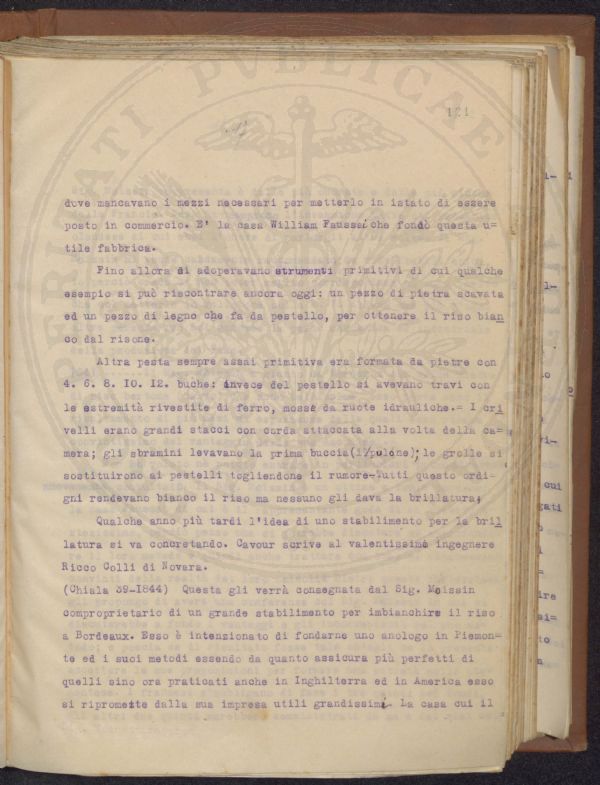 121
dove mancavano i mezzi necessari per metterlo in istato di essere
posto in commercio. E' la casa William Faussa che fondò questa u=
tile fabbrica.
Fino allora si adoperavano strumenti primitivi di cui qualche
esempio si può riscontrare ancora oggi: un pezzo di pietra scavata
ed un pezzo di legno che fa da pestello, per ottenere il riso bian
co dal risone.
Altra pesta sempre assai primitiva era formata da pietre con
4. 6. 8. 10. 12. buche: invece del pestello si avevano travi con
le estremità rivestite di ferro, mosse da ruote idrauliche.= I cri
velli erano grandi stacci con corda attaccata alla volta della ca=
mera; gli sbramini levavano la prima buccia (il pulone); le grolle si
sostituirono ai pestelli togliendone il rumore-Tutti questo ordi=
gni rendevano bianco il riso ma nessuno gli dava la brillatura;
Qualche anno più tardi l'idea di uno stabilimento per la bril
latura si va concretando. Cavour scrive al valentissimo ingegnere
Ricco Colli di Novara.
(Chiala 39-1844) Questa gli verrà consegnata dal Sig. Moissin
comproprietario di un grande stabilimento per imbianchire il riso
a Bordeaux. Esso è intenzionato di fondarne uno anologo in Piemon=
te ed i suoi metodi essendo da quanto assicura più perfetti di
quelli sino ora praticati anche in Inghilterra ed in America esso
si ripromette dalla sua impresa utili grandissimi. La casa cui il